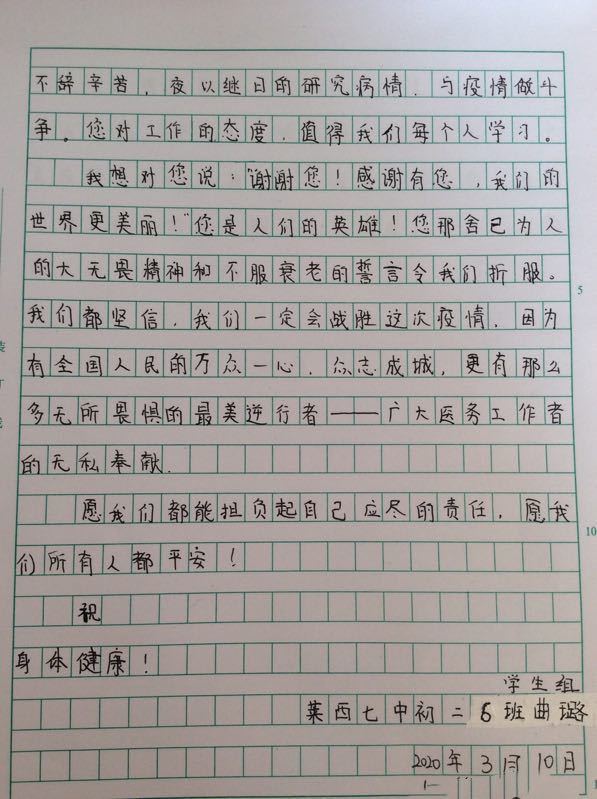 不辞辛苦，夜以继日的研究病情，与疫情做斗
争。您对工作的态度，值得我们每个人学习。
我想对您说："谢谢您！感谢有您，我们的
世界更美丽！"您是人们的英雄！您那舍己为人
的大无畏精神和不服衰老的誓言令我们折服。
5
我们都坚信，我们一定会战胜这次疫情，因为
有全国人民的万众一心，众志成城，更有那么
多无所畏惧的最美逆行者——广大医务工作者
的无私奉献．
愿我们都能担负起自己应尽的责任，愿我
10
们所有人都平安！
祝
身体健康！
学生组
莱西七中初二6班曲璐
2020年3月10日